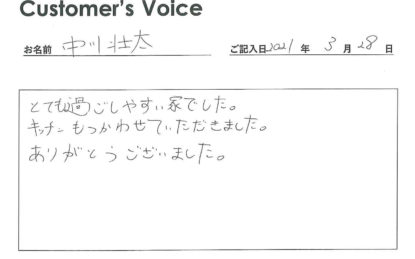 Customer's Voice
お名前 中川壮太 ご記入日 2021 年 3 月 28 日
とても過ごしやすい家でした。
キッチンもつかわせていただきました。
ありがとうございました。